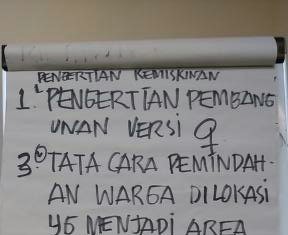 PENGERTIAN KEMISKINAN
1. PENGERTIAN PEMBANG
UNAN VERSI 9
3. TATA CARA PEMINDAH-
AN WARGA DILOKASI
YG MENJADI AREA